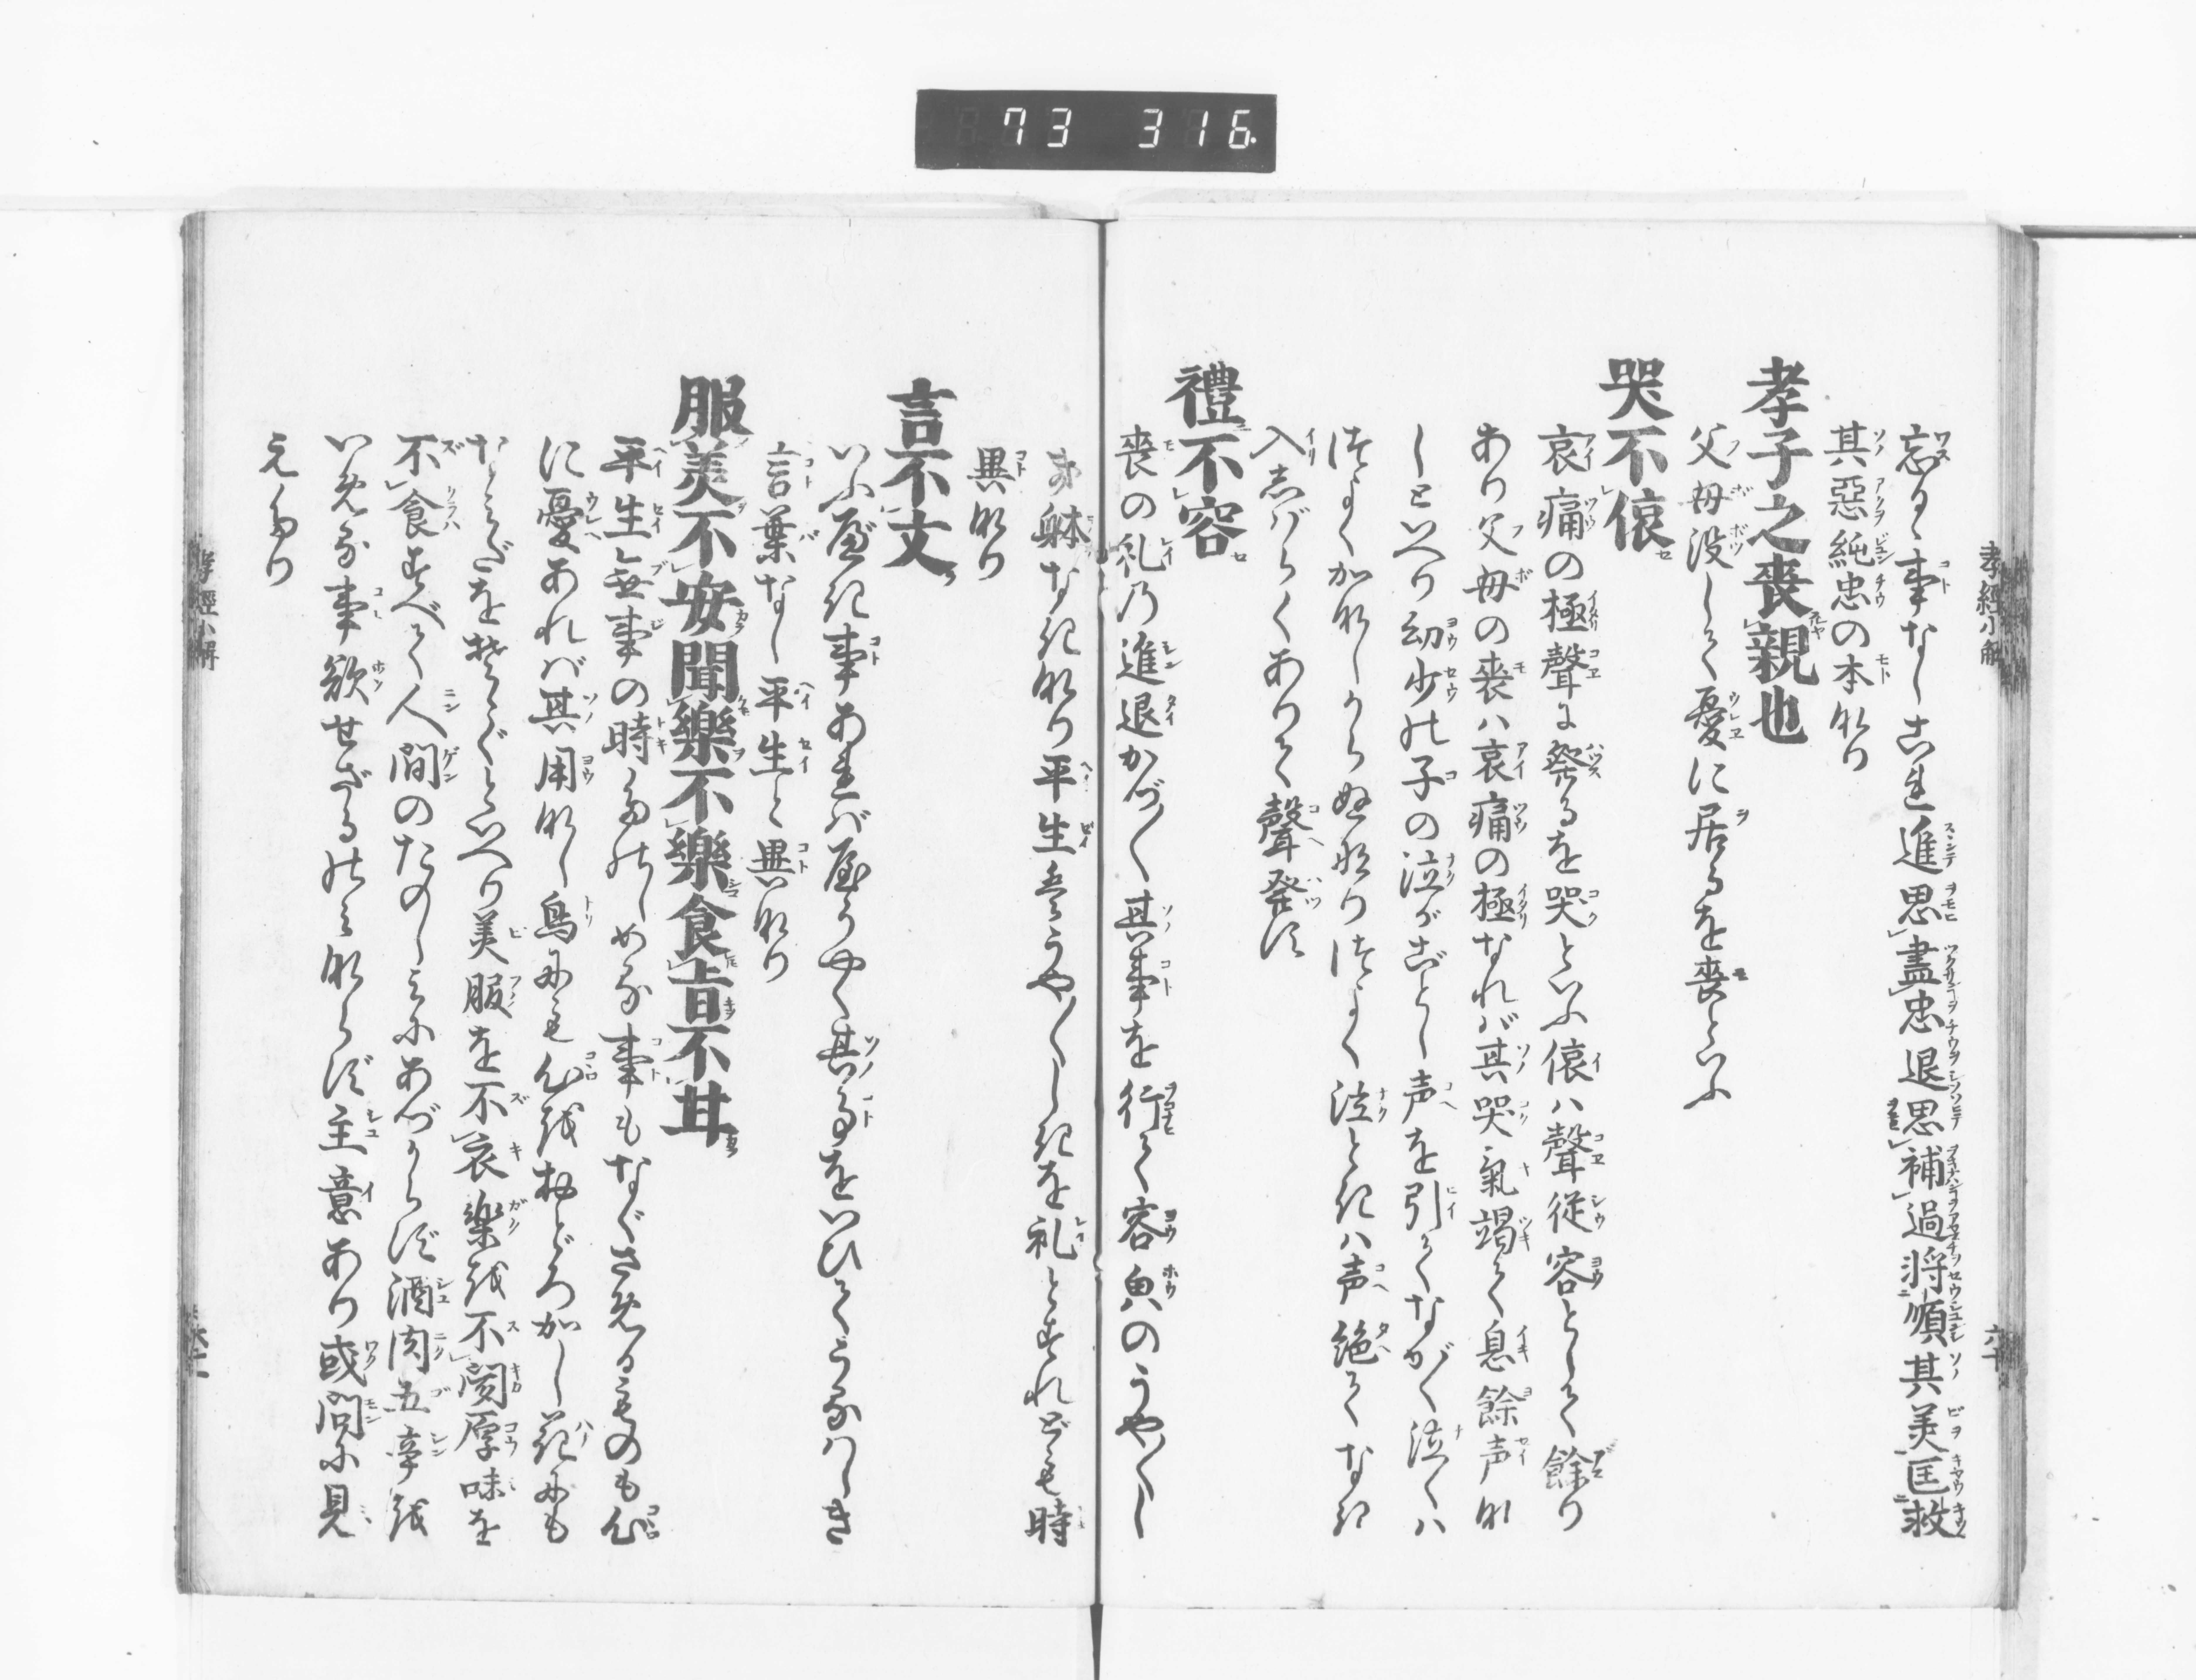 73 316.
孝經小解
忘るゝ事なしこれ進思盡忠退思補過將順其美匡救
其惡純忠の本なり
孝子之喪親也
父母没して憂に居るを喪といふ
哭不偯
哀痛の極聲に發るを哭といふ偯ハ聲從容として餘り
あり父母の喪ハ哀痛の極なれバ其哭氣竭て息餘声な
しといへり幼少の子の泣がごとし声を引てながく泣くハ
つよくかなしからぬなりつよく泣ときハ声絶てなき
入しバらくありて聲発す
禮不容
喪の礼乃進退かづ〱其事を行て容皃のうや〱し
き躰なきなり平生ハうや〱しきを礼とすれども時
異なり
言不文
いふべき事あれバ

言葉なし平生と異なり
服美不安聞樂不樂食旨不甘
平生無事の時たのしめる事もなぐさめるものも心
に憂あれバ其用なし鳥にも心をおどろかし花にも
なミだをそゝぐといへり美服を不衣樂を不聞厚味を
不食すべて人間のたのしミにあづからず酒肉五辛を
いめる事欲せざるのミならず主意あり或問に見
えたり
孝經小解